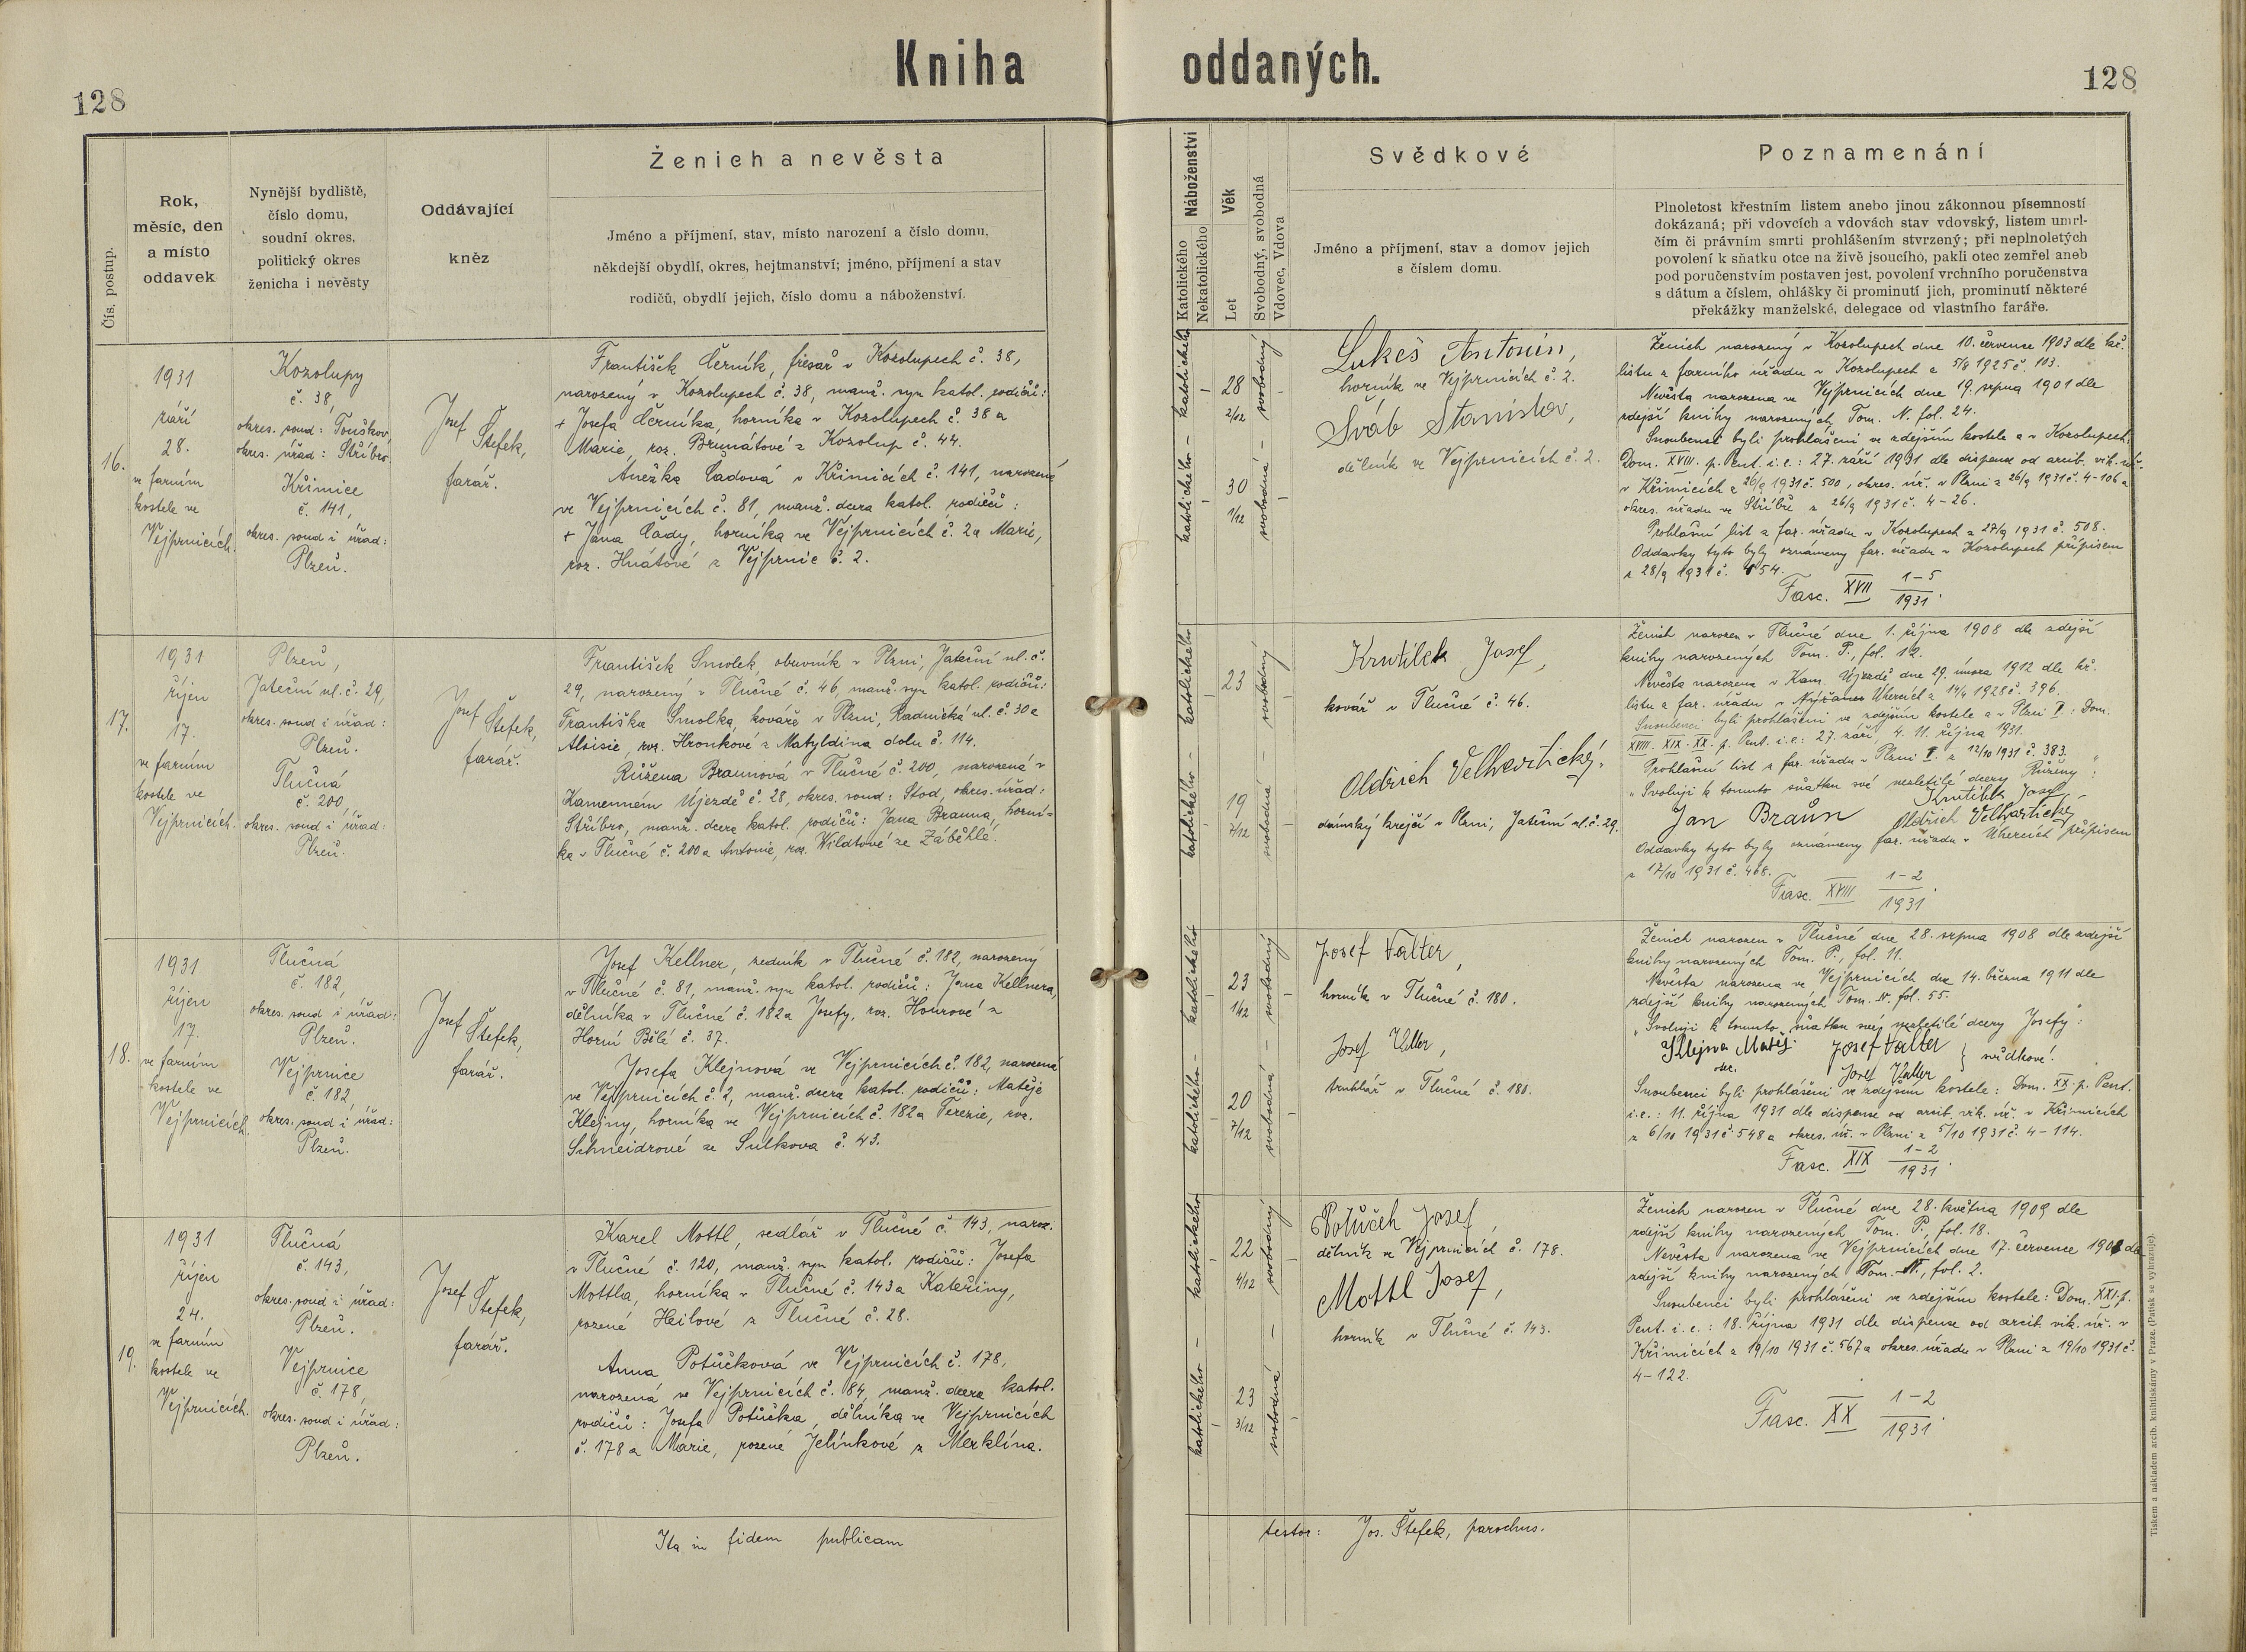 Kniha oddaných.
128
128
Čís. postup.
Rok,
měsíc, den
a místo
oddavek
Nynější bydliště,
číslo domu,
soudní okres,
politický okres
ženicha i nevěsty
Oddávající
kněz
Ženich a nevěsta
Jméno a příjmení, stav, místo narození a číslo domu,
někdejší obydlí, okres, hejtmanství; jméno, příjmení a stav
rodičů, obydlí jejich, číslo domu a náboženství.
Náboženství
Katolického
Nekatolického
Věk
Let
Svobodný, svobodná
Vdovec, Vdova
Svědkové
Jméno a příjmení, stav a domov jejich
s číslem domu.
Poznamenání
Plnoletost křestním listem anebo jinou zákonnou písemností
dokázaná; při vdovcích a vdovách stav vdovský, listem umrl-
čím či právním smrti prohlášením stvrzený; při neplnoletých
povolení k sňatku otce na živě jsoucího, pakli otec zemřel aneb
pod poručenstvím postaven jest, povolení vrchního poručenstva
s dátum a číslem, ohlášky či prominutí jich, prominutí některé
překážky manželské, delegace od vlastního faráře.
16.
1931
září
28.
ve farním
kostele ve
Vejprnicích.
Kozolupy
č. 38,
okres. soud: Touškov,
okres. úřad: Stříbro.
Křimice
č. 141,
okres. soud i úřad:
Plzeň.
Josef Štefek,
farář.
František Černík, frésař v Kozolupech č. 38,
narozený v Kozolupech č. 38, manž. syn katol. rodičů:
+ Josefa Černíka, horníka v Kozolupech č. 38 a
Marie, roz. Brunátové z Kozolup č. 44.
Anežka Čadová v Křimicích č. 141, narozená
ve Vejprnicích č. 81, manž. dcera katol. rodičů:
+ Jana Čady, horníka ve Vejprnicích č. 2 a Marie,
roz. Hnátové z Vejprnic č. 2.
katolického – katolického –
28
2/12
30
1/12
svobodná – svobodný
Lukeš Antonín,
horník ve Vejprnicích č. 2.
Šváb Stanislav,
dělník ve Vejprnicích č. 2.
Ženich narozený v Kozolupech dne 10. července 1903 dle kř.
listu z farního úřadu v Kozolupech z 5/8 1925 č. 103.
Nevěsta narozena ve Vejprnicích dne 19. srpna 1901 dle
zdejší knihy narozených, Tom. N. fol. 24.
Snoubenci byli prohlášeni ve zdejším kostele a v Kozolupech:
Dom. XVIII. p. Pent. i. e.: 27. září 1931 dle dispense od arcib. vik. úř.
v Křimicích z 26/9 1931 č. 500, okres. úř. v Plzni z 26/9 1931 č. 4-106 a
okres. úřadu ve Stříbře z 26/9 1931 č. 4-26.
Prohlašní list z far. úřadu v Kozolupech z 27/9 1931 č. 508.
Oddavky tyto byly oznámeny far. úřadu v Kozolupech přípisem
z 28/9 1931 č. 454.
Fasc. XVII 1-5/1931.
17.
1931
říjen
17.
ve farním
kostele ve
Vejprnicích.
Plzeň,
Jateční ul. č. 29,
okres. soud i úřad:
Plzeň.
Tlučná
č. 200,
okres. soud i úřad:
Plzeň.
Josef Štefek,
farář.
František Smolek, obuvník v Plzni, Jateční ul. č.
29, narozený v Tlučné č. 46, manž. syn katol. rodičů:
Františka Smolka, kováře v Plzni, Radnická ul. č. 30 a
Aloisie, roz. Hronkové z Matyldina dolu č. 114.
Růžena Braunová v Tlučné č. 200, narozená v
Kamenném Újezdě č. 28, okres. soud: Stod, okres. úřad:
Stříbro, manž. dcera katol. rodičů: Jana Brauna, horní-
ka v Tlučné č. 200 a Antonie, roz. Wildtové ze Záběhlé.
katolického – katolického –
23
19
7/12
svobodná – svobodný
Krutilek Josef,
kovář v Tlučné č. 46.
Oldřich Velhartický,
dámský krejčí v Plzni, Jateční ul. č. 29.
Ženich narozen v Tlučné dne 1. října 1908 dle zdejší
knihy narozených Tom. P., fol. 12.
Nevěsta narozena v Kam. Újezdě dne 29. února 1912 dle kř.
listu z far. úřadu v Nýřanech Úhercích z 14/4 1928 č. 396.
Snoubenci byli prohlášeni ve zdejším kostele a v Plzni II: Dom.
XVIII. XIX. XX. p. Pent. i. e.: 27. září, 4. 11. října 1931.
Prohlašní list z far. úřadu v Plzni II. z 12/10 1931 č. 383.
„Svoluji k tomuto sňatku své nezletilé dcery Růženy":
Krutilek Josef
Jan Braun Oldřich Velhartický
Oddavky tyto byly oznámeny far. úřadu v Úhercích přípisem
z 17/10 1931 č. 468.
Fasc. XVIII 1-2/1931.
18.
1931
říjen
17.
ve farním
kostele ve
Vejprnicích.
Tlučná
č. 182,
okres. soud i úřad:
Plzeň.
Vejprnice
č. 182,
okres. soud i úřad:
Plzeň.
Josef Štefek,
farář.
Josef Kellner, zedník v Tlučné č. 182, narozený
v Tlučné č. 81, manž. syn katol. rodičů: Jana Kellnera,
dělníka v Tlučné č. 182 a Josefy, roz. Hourové z
Horní Bělé č. 37.
Josefa Klejnová ve Vejprnicích č. 182, narozená
ve Vejprnicích č. 2, manž. dcera katol. rodičů: Matěje
Klejny, horníka ve Vejprnicích č. 182 a Terezie, roz.
Schneidrové ze Sulkova č. 43.
katolického – katolického
23
1/12
20
7/12
svobodná – svobodný
Josef Valter,
horník v Tlučné č. 180.
Josef Valter,
truhlář v Tlučné č. 180.
Ženich narozen v Tlučné dne 28. srpna 1908 dle zdejší
knihy narozených Tom. P., fol. 11.
Nevěsta narozena ve Vejprnicích dne 14. března 1911 dle
zdejší knihy narozených Tom. N. fol. 55.
„Svoluji k tomuto sňatku svojí nezletilé dcery Josefy":
Klejna Matěj Josef Valter } svědkové!
otec. Josef Valter
Snoubenci byli prohlášeni ve zdejším kostele: Dom. XX. p. Pent.
i. e.: 11. října 1931 dle dispense od arcib. vik. úř. v Křimicích
z 6/10 1931 č. 548 a okres. úř. v Plzni z 5/10 1931 č. 4-114.
Fasc. XIX 1-2/1931.
19.
1931
říjen
24.
ve farním
kostele ve
Vejprnicích.
Tlučná
č. 143,
okres. soud i úřad:
Plzeň.
Vejprnice
č. 178,
okres. soud i úřad:
Plzeň.
Josef Štefek,
farář.
Karel Mottl, sedlář v Tlučné č. 143, naroz.
v Tlučné č. 120, manž. syn katol. rodičů: Josefa
Mottla, horníka v Tlučné č. 143 a Kateřiny,
rozené Heilové z Tlučné č. 28.
Anna Potůčková ve Vejprnicích č. 178,
narozená ve Vejprnicích č. 84, manž. dcera katol.
rodičů: Josefa Potůčka, dělníka ve Vejprnicích
č. 178 a Marie, rozené Jelínkové z Merklína.
katolického – katolického
22
4/12
23
3/12
svobodná – svobodný
Potůček Josef,
dělník ve Vejprnicích č. 178.
Mottl Josef,
horník v Tlučné č. 143.
Ženich narozen v Tlučné dne 28. května 1909 dle
zdejší knihy narozených Tom. P., fol. 18.
Nevěsta narozena ve Vejprnicích dne 17. července 1908 dle
zdejší knihy narozených Tom. N., fol. 2.
Snoubenci byli prohlášeni ve zdejším kostele: Dom. XXI. p.
Pent. i. e.: 18. října 1931 dle dispense od arcib. vik. úř. v
Křimicích z 19/10 1931 č. 567 a okres. úřadu v Plzni z 19/10 1931 č.
4-122.
Fasc. XX 1-2/1931.
Ita in fidem publicam testor: Jos. Štefek, parochus.
Tiskem a nákladem arcib. knihtiskárny v Praze. (Patisk se vyhrazuje).